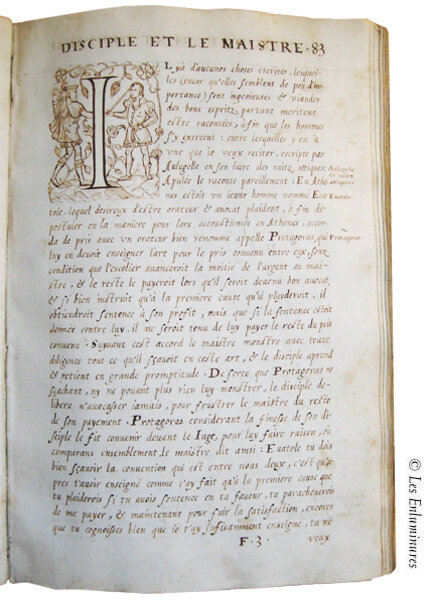 DISCIPLE ET LE MAISTRE · 83
IL ya d'aucunes choses escrites, lesquel-
les (encor qu'elles semblent de peu d'im-
portance) sont ingenieuses & viandes
des bons espritz, partant meritent
estre racontées, à fin que les hommes
s'y exercent : entre lesquelles y en à
vne que ie veux reciter, escripte par
Aulugelle en son liure des nuitz, attiques:
Apulee la raconte pareillement : En Athe-
nes estoit vn ieune homme nommé Eua-
tole, lequel desireux d'estre orateur & auocat plaidant, à fin de
postuler en la maniere pour lors accoustumée en Athenes, accor-
da de pris avec vn orateur bien renommé appellé Protagoras, qui
luy en devoit enseigner l'art pour le pris convenu entre eux, souz
condition que l'escolier avanceroit la moitié de l'argent au mai-
stre, & le reste le payeroit lors qu'il seroit devenu bon avocat,
& si bien instruit qu'à la premiere cause qu'il playderoit, il
obtiendroit sentence à son profit, mais que si la sentence estoit
donnée contre luy, il ne seroit tenu de luy payer le reste du pris
convenu : Suyuant cest accord le maistre monstre avec toute
diligence tout ce qu'il sçavoit en ceste art, & le disciple aprent
& retient en grande promptitude · De sorte que Protagoras ne
sçachant, ny ne pouvant plus rien luy monstrer, le disciple de-
libera n'avocasser iamais, pour frustrer le maistre du reste
de son payement · Protagoras considerant la finesse de son di-
sciple le fit convenir devant le Iuge, pour luy faire raison, où
comparans ensemblement, le maistre dit ainsi : Euatole tu dois
bien sçavoir la convention qui est entre nous deux, c'est qu'a-
pres t'avoir enseigné comme i'ay fait qu'à la premiere cause que
tu plaiderois si tu avois sentence en ta faveur, tu paracheverois
de me payer, & maintenant pour fuir la satisfaction, encores
que tu cognoisses bien que ie t'ay suffisamment enseigné, tu ne
F · 3 ·
veux
Aulugelle
attiques
Euatole
Protagoras
© Les Enluminures